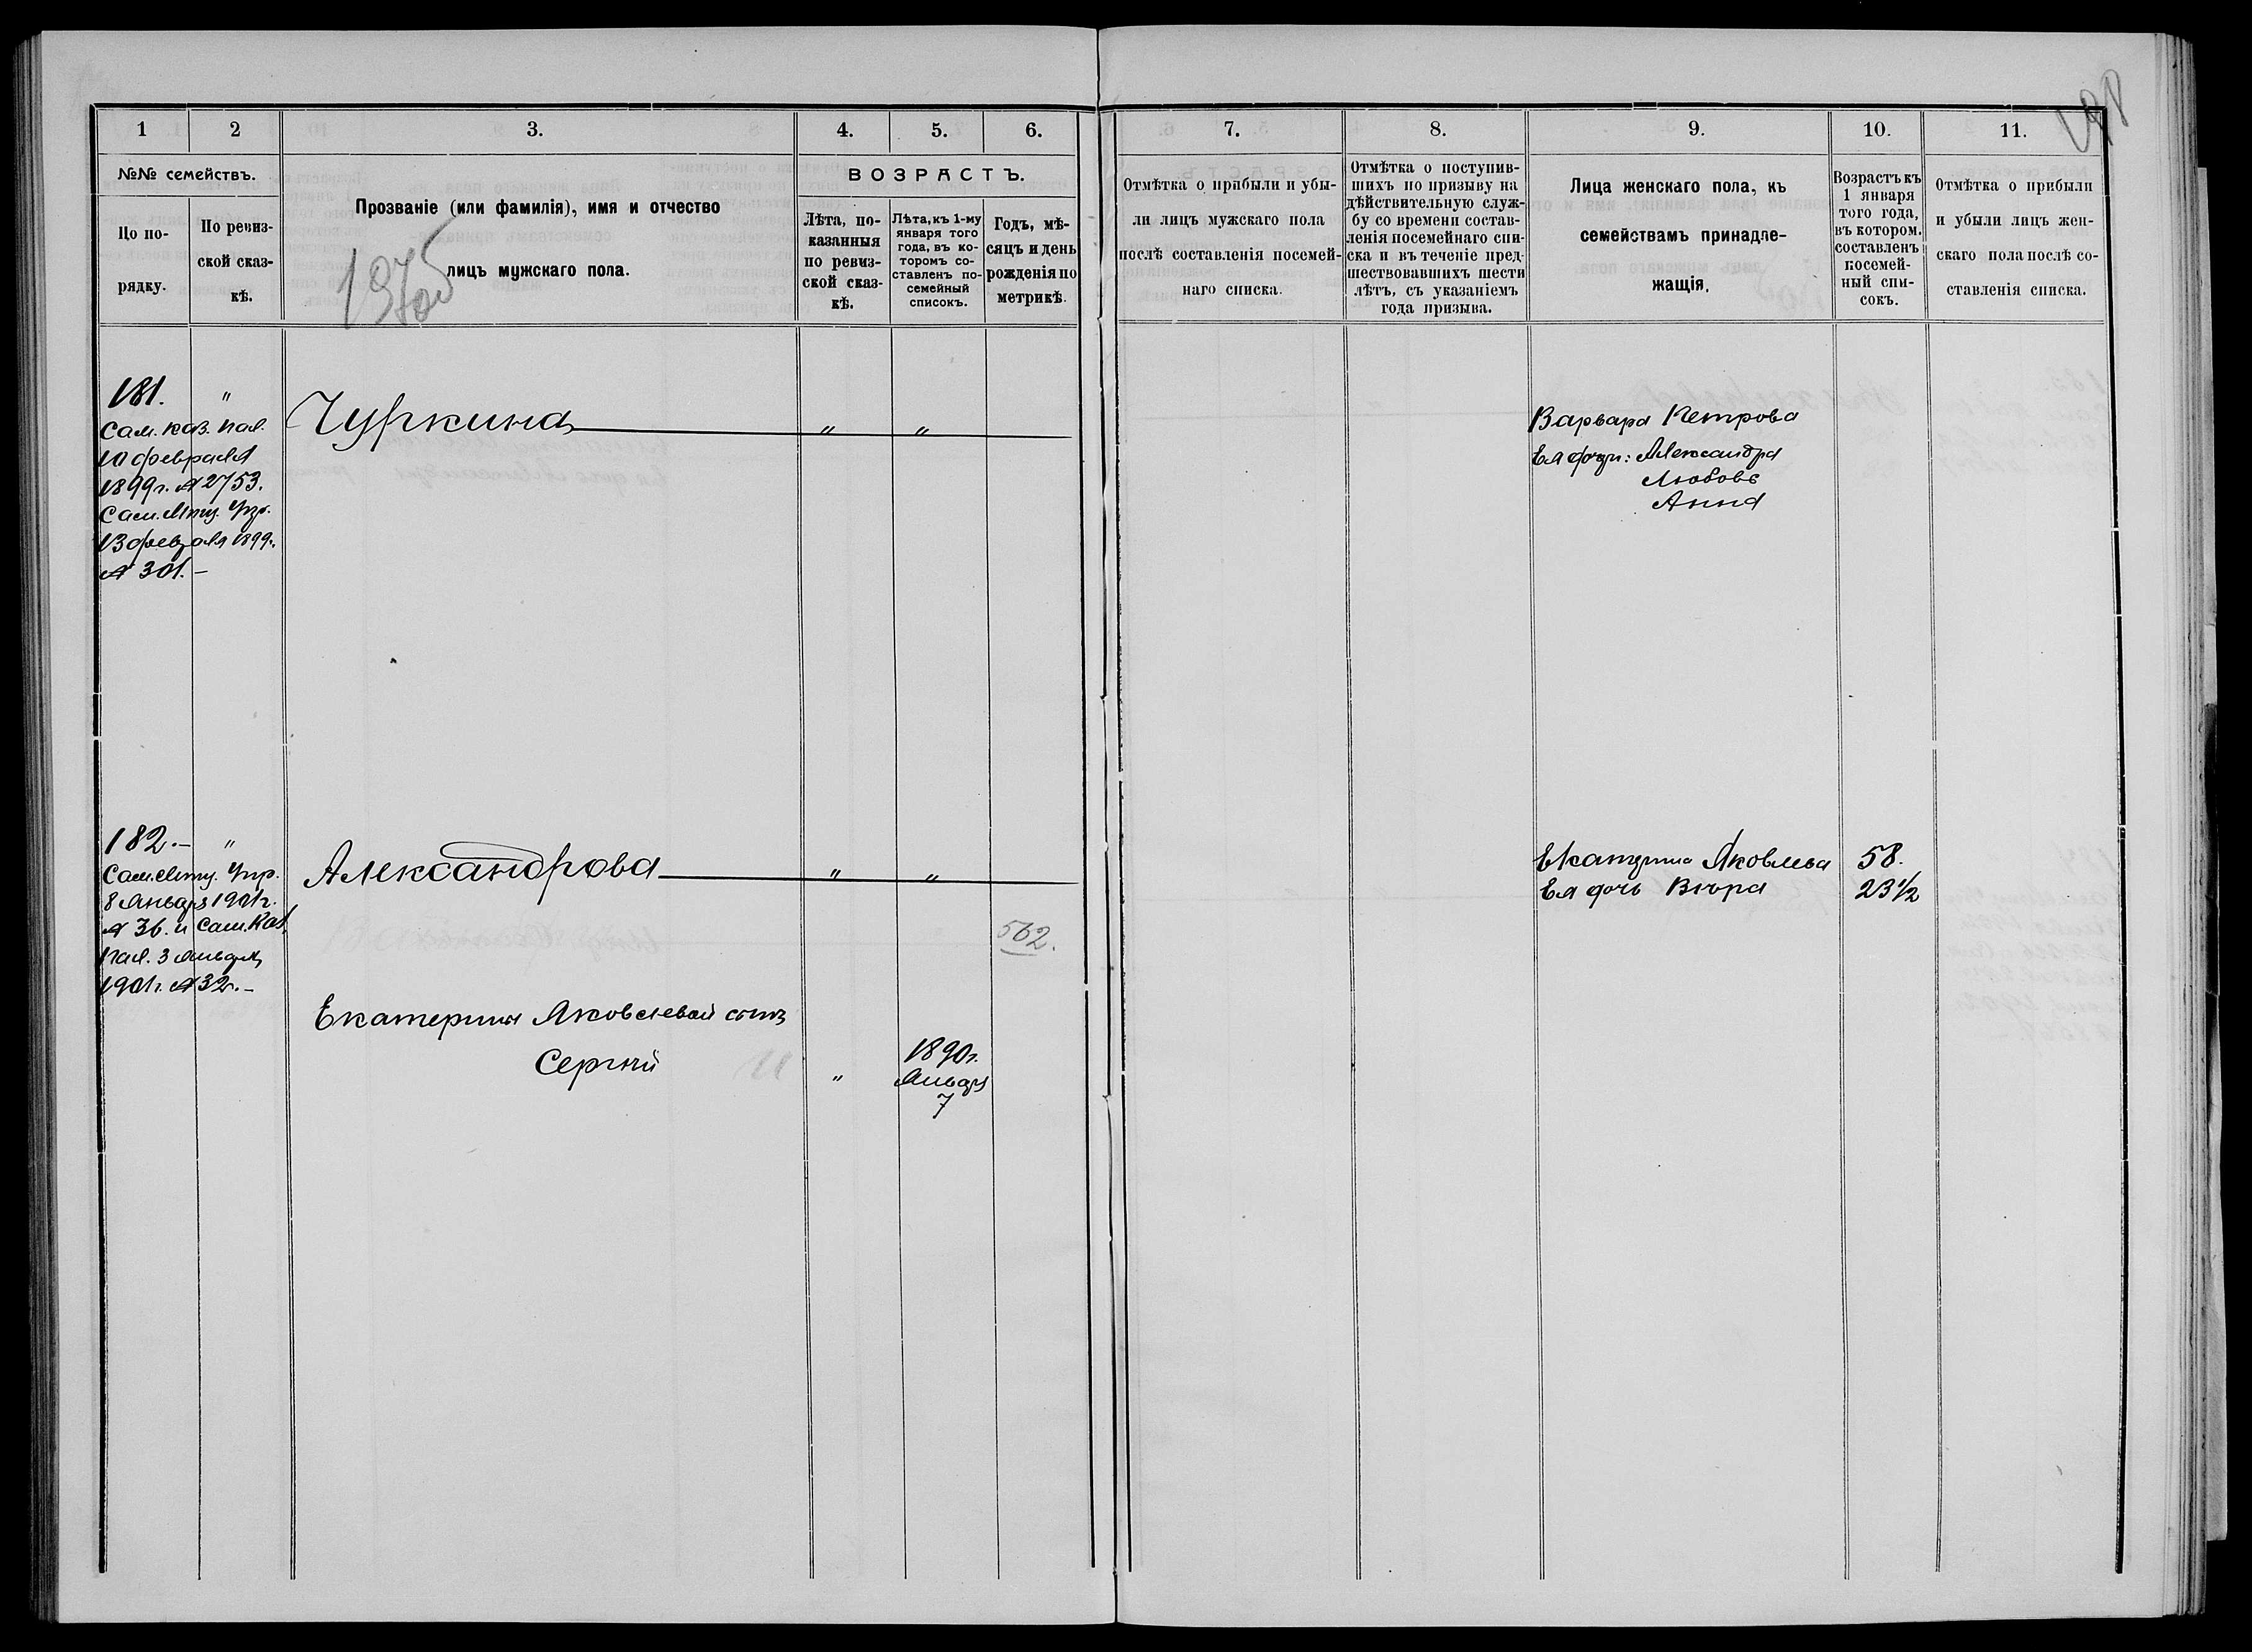 198
1 2 3. 4. 5. 6. 7. 8. 9. 10. 11.
№№ семействъ.
По по-
рядку.
По ревиз-
ской сказ-
кѣ.
Прозваніе (или фамилія), имя и отчество
лицъ мужскаго пола.
ВОЗРАСТЪ.
Лѣта, по-
казанныя
по ревиз-
ской сказ-
кѣ.
Лѣта, къ 1-му
января того
года, въ ко-
торомъ со-
ставленъ по-
семейный
списокъ.
Годъ, мѣ-
сяцъ и день
рожденія по
метрикѣ.
Отмѣтка о прибыли и убы-
ли лицъ мужскаго пола
послѣ составленія посемей-
наго списка.
Отмѣтка о поступив-
шихъ по призыву на
дѣйствительную служ-
бу со времени состав-
ленія посемейнаго спи-
ска и въ теченіе пред-
шествовавшихъ шести
лѣтъ, съ указаніемъ
года призыва.
Лица женскаго пола, къ
семействамъ принадле-
жащія.
Возрастъ къ
1 января
того года,
въ котором.
составленъ
посемей-
ный спи-
сокъ.
Отмѣтка о прибыли
и убыли лицъ жен-
скаго пола послѣ со-
ставленія списка.
181. "
Сам. каз. пал.
10 февраля
1899г. № 2753.
Сам. Мѣщ. Упр.
13 февраля 1899г.
№ 301.-
Чуркина " "
Варвара Петрова
Ея дочри: Александра
Любовь
Анна
182.- "
Сам. Мѣщ. Упр.
8 Января 1901г.
№ 36. и Сам. Каз.
Пал. 3 Января
1901г. № 32.-
Александрова " "
562.
Екатерины Яковлевой сынъ
Сергѣй " 1890г.
Января
7
Екатерина Яковлева 58.
Ея дочь Вѣра 23½